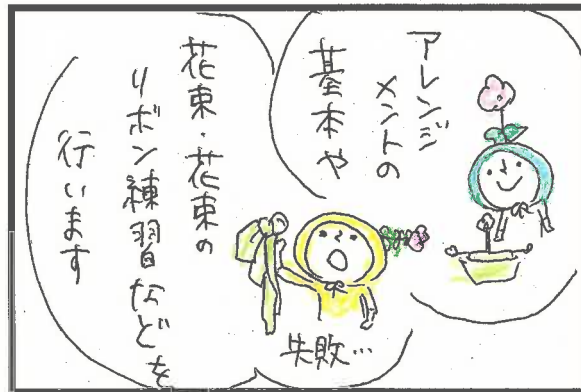 アレンジ
メントの
基本や
花束・花束の
リボン練習などを
行います
失敗…